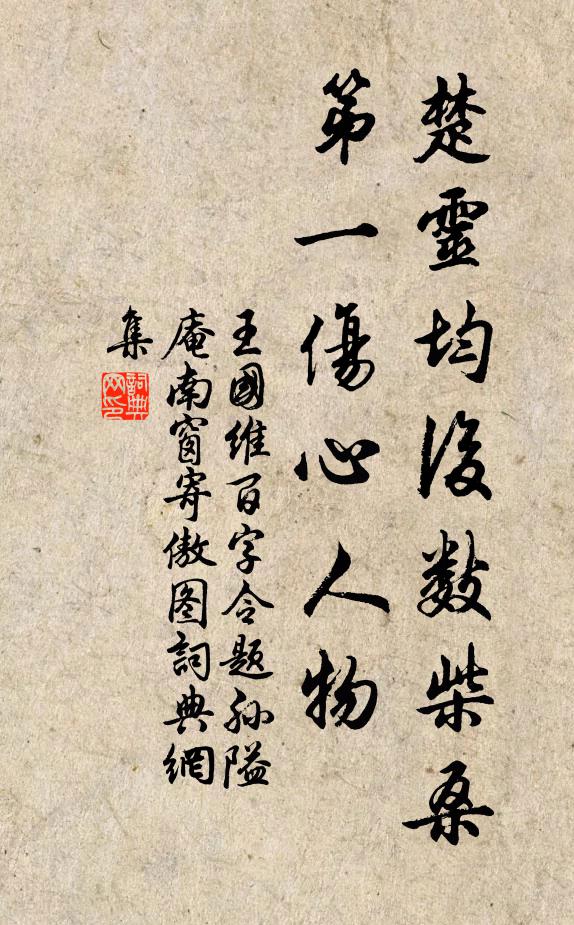 楚靈均後數柴桑
第一傷心人物
王國維百字令題孙隘
庵南窗寄傲图詞典網
集
詞典
网印